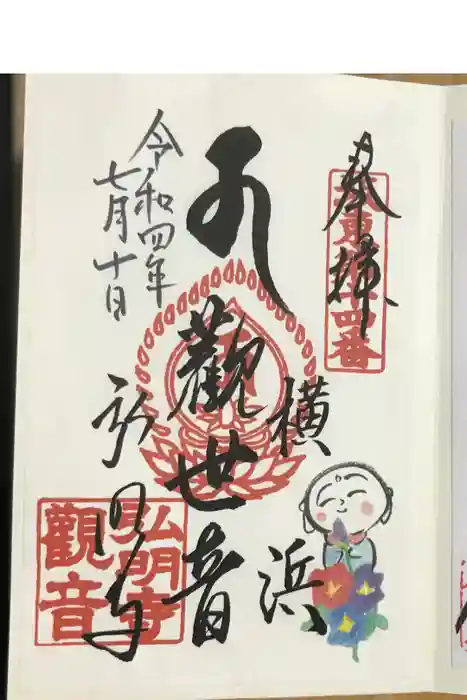 奉拝
坂東第十四番
横浜
観世音
弘明寺
弘明寺
観音
令和四年
七月十日